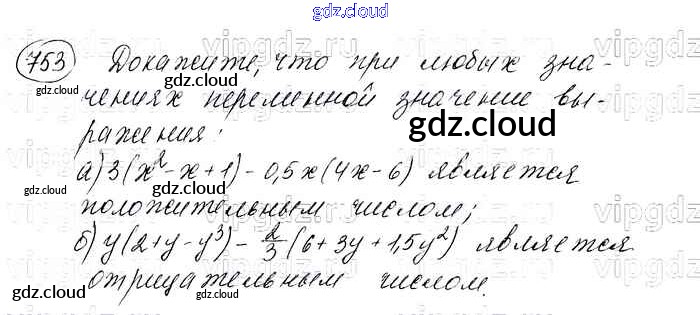 gdz.cloud
753 Докажите, что при любых зна-
gdz.cloud
чениях переменной значение вы-
ражения:
gdz.cloud
а) 3(x²-x+1)-0,5x(4x-6) является
gdz.cloud
положительным числом;
б) y(2+y-y³)-2/3(6+3y+1,5y²) является
gdz.cloud
отрицательным числом.
gdz.cloud